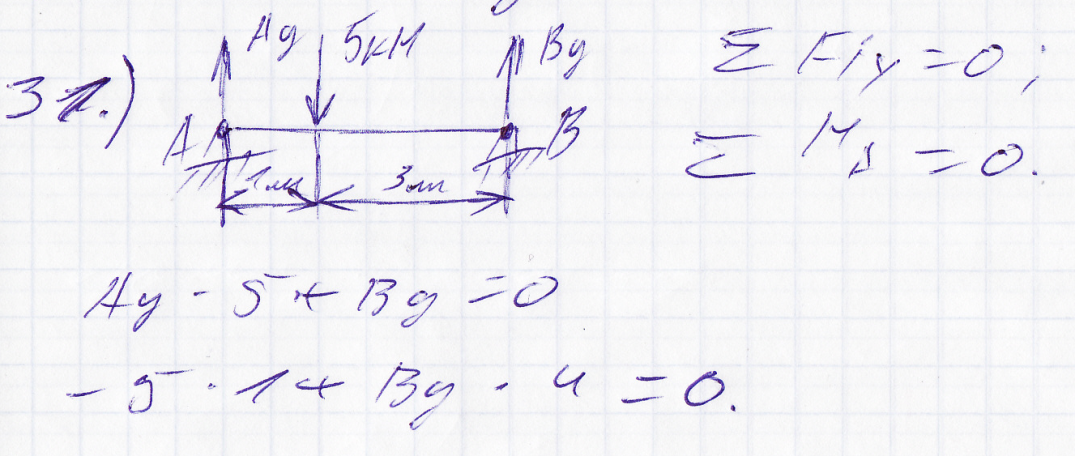 31.)
Ay 5кН By
A B
1м 3м
Σ Fiy = 0;
Σ MA = 0.
Ay - 5 + By = 0
- 5 · 1 + By · 4 = 0.